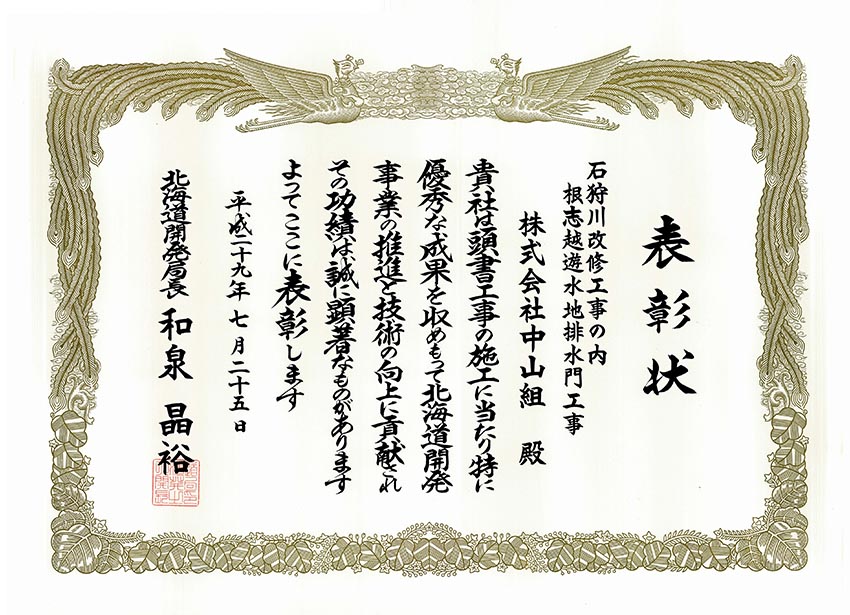 表彰状
石狩川改修工事の内
根志越遊水地排水門工事
株式会社中山組 殿
貴社は頭書工事の施工に当たり特に
優秀な成果を収めもって北海道開発
事業の推進と技術の向上に貢献され
その功績は誠に顕著なものがあります
よってここに表彰します
平成二十九年七月二十五日
北海道開発局長 和泉晶裕